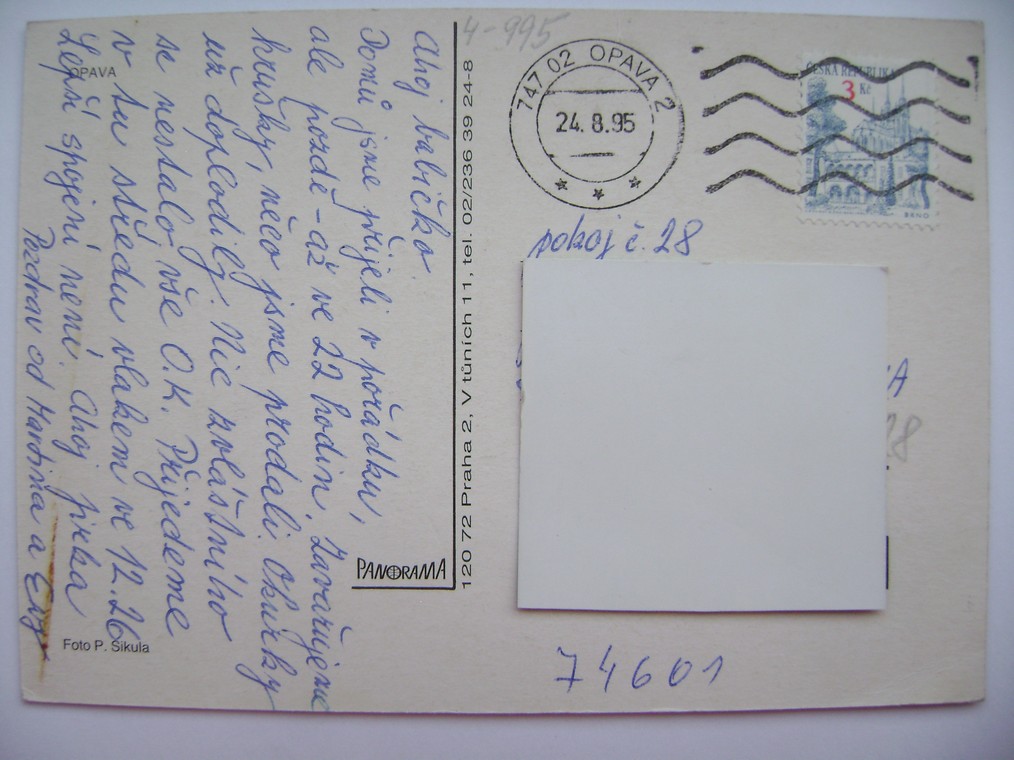 Ahoj babičko.
Domů jsme přijeli v pořádku,
ale pozdě - až ve 22 hodin. Zavařujeme
hrušky, něco jsme prodali. Okurky
už doplodily. Nic zvláštního
se nestalo, vše O.K. Přijedeme
v tu středu vlakem ve 12.26
Lepší spojení není. Ahoj Jirka
Pozdrav od Martina a
OPAVA
Foto P. Sikula
PANORAMA
120 72 Praha 2, V tůních 11, tel. 02/236 39 24-8
4-995
747 02 OPAVA 2
24.8.95
ČESKÁ REPUBLIKA
3 Kč
BRNO
pokoj č. 28
A
28
74601